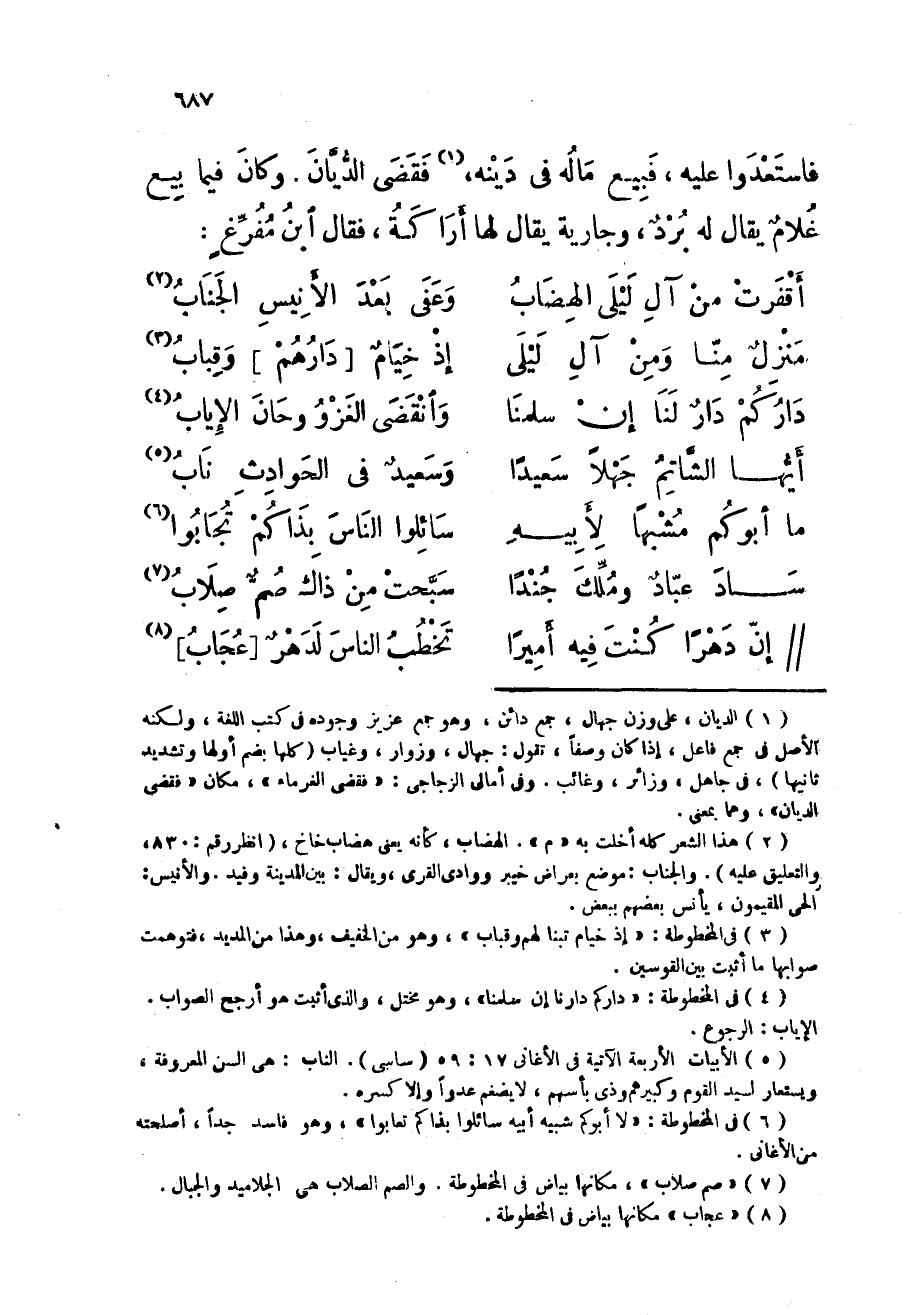 ٦٨٧
فاستَعْدَوا عليه ، فَبِيع مَالُه فى دَيْنه،(١) فَقَضَى الدُّيَّانَ . وكانَ فيما بِيع
غُلامٌ يقال له بُرْدٌ، وجارية يقال لها أَرَاكَةُ ، فقال ٱبنُ مُفَرِّغٍ :
أَقْفَرتْ منْ آلِ لَيْلَى الهِضَابُ وَعَفَى بَعْدَ الأَنِيسِ الجَنَابُ(٢)
مَنْزِلٌ مِنَّا وَمِنْ آلِ لَيْلَى إذْ خِيَامٌ [دَارُهُمْ] وَقِبابُ(٣)
دَارُكُمْ دَارٌ لَنَا إِنْ سلمنَا وَٱنْقَضَى الغَزْوُ وحَانَ الإِيابُ(٤)
أَيُّهَا الشَّاتِمُ جَهْلاً سَعيدًا وَسَعيدٌ فى الحَوادِثِ نَابُ(٥)
ما أبوكم مُشْبهًا لِأَبِيهِ سَائِلوا النَاسَ بِذَاكُمْ تُجَابُوا(٦)
سَادَ عبّادٌ ومُلِّكَ جُنْدًا سَبَّحتْ مِنْ ذاكَ صُمٌّ صِلَابُ(٧)
// إنّ دَهْرًا كُنْتَ فِيه أَمِيرًا تَخْطُبُ الناسَ لَدَهْرٌ [عُجَابُ](٨)
( ١ ) الديان ، على وزن جهال ، جمع دائن ، وهو جمع عزيز وجوده فى كتب اللغة ، ولكنه
الأصل فى جمع فاعل ، إذا كان وصفاً ، تقول : جهال ، وزوار ، وغياب (كلها بضم أولها وتشديد
ثانيها) ، فى جاهل ، وزائر ، وغائب . وفى أمالى الزجاجى : « فقضى الغرماء » ، مكان « فقضى
الديان» ، وهما بمعنى .
( ٢ ) هذا الشعر كله أخلت به « م » . الهضاب ، كأنه يعنى هضاب خاخ ، (انظر رقم : ٨٣٠،
والتعليق عليه) . والجناب : موضع بعراض خيبر ووادى القرى ، ويقال : بين المدينة وفيد . والأنيس:
الحى المقيمون ، يأنس بعضهم ببعض .
( ٣ ) فى المخطوطة : « إذ خيام تبنا لهم وقباب » ، وهو من الخفيف ، وهذا من المديد ، فتوهمت
صوابها ما أثبت بين القوسين .
( ٤ ) فى المخطوطة : « داركم دارنا إن سلمنا» ، وهو مختل ، والذى أثبت هو أرجح الصواب .
الإياب : الرجوع .
( ٥ ) الأبيات الأربعة الآتية فى الأغانى ١٧ : ٥٩ (ساسى) . الناب : هى السن المعروفة ،
ويستعار لسيد القوم وكبيرهم وذى بأسهم ، لا يضغم عدواً وإلا كسره .
( ٦ ) فى المخطوطة : «لا أبوكم شبيه أبيه سائلوا بذاكم تعابوا» ، وهو فاسد جداً ، أصلحته
من الأغانى .
( ٧ ) « صم صلاب » ، مكانها بياض فى المخطوطة . والصم الصلاب هى الجلاميد والجبال .
( ٨ ) « عجاب » مكانها بياض فى المخطوطة .